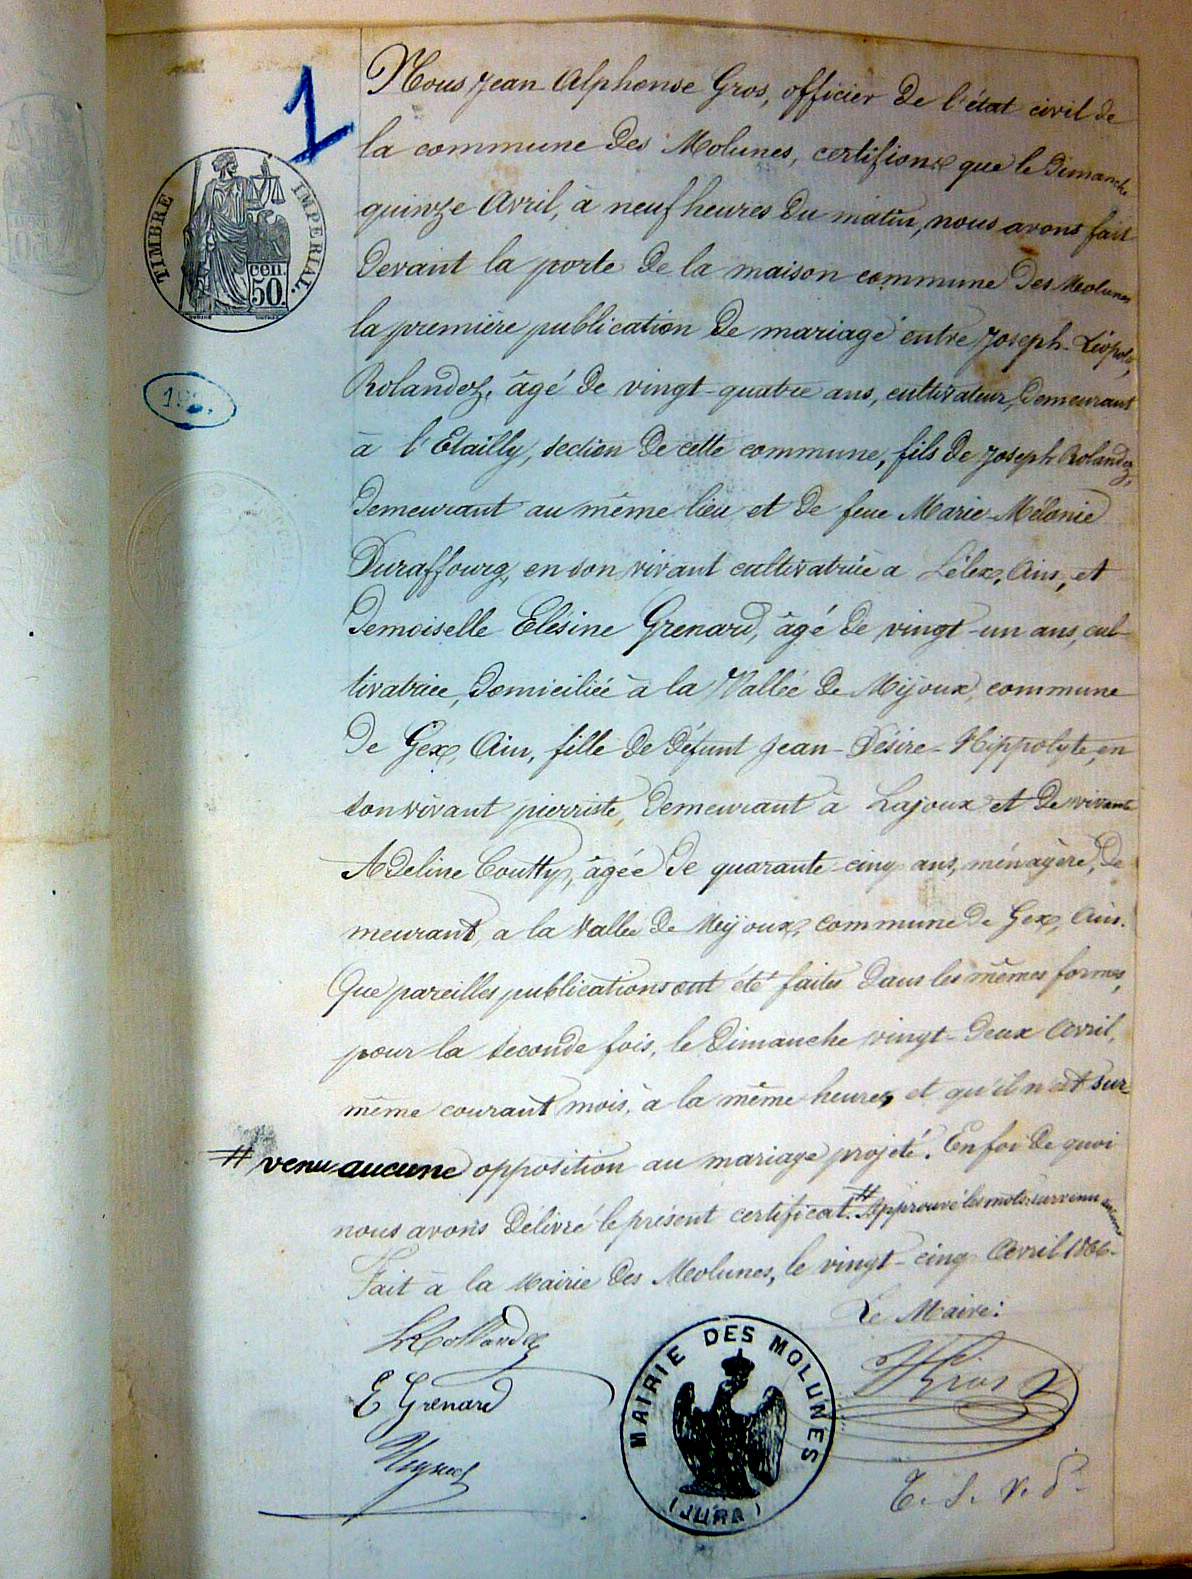 1
TIMBRE IMPERIAL.
cen.
50.
Nous Jean Alphonse Gros, officier de l'état civil de
la commune des Molunes, certifions que le Dimanche
quinze Avril, à neuf heures du matin, nous avons fait
devant la porte de la maison commune des Molunes
la première publication de mariage entre Joseph-Léopold,
Rolandez, âgé de vingt-quatre ans, cultivateur, demeurant
à l'Etailly, section de cette commune, fils de Joseph Rolandez,
demeurant au même lieu et de feue Marie-Mélanie
Duraffourg, en son vivant cultivatrice à Lélex, Ain, et
demoiselle Elésine Grenard, âgé de vingt-un ans, cul-
tivatrice, domiciliée à la Vallée de Mijoux, commune
de Gex, Ain, fille de défunt Jean-Désire-Hippolyte, en
son vivant pierriste, demeurant à Lajoux et de vivante
Adeline Coutty, âgée de quarante-cinq ans, ménagère, de
meurant, à la Vallée de Mijoux, commune de Gex, Ain.
Que pareilles publications ont été faites dans les mêmes formes,
pour la seconde fois, le Dimanche vingt-deux Avril,
même courant mois, à la même heure, et qu'il n'est sur-
# venu aucune opposition au mariage projeté. En foi de quoi
nous avons délivré le présent certificat. # Approuvé les mots: survenu aucune
Fait à la Mairie des Molunes, le vingt-cinq Avril 1866.
Le Maire:
Gros
E Grenard
MAIRIE DES MOLUNES
(JURA)
T. S. V. P.